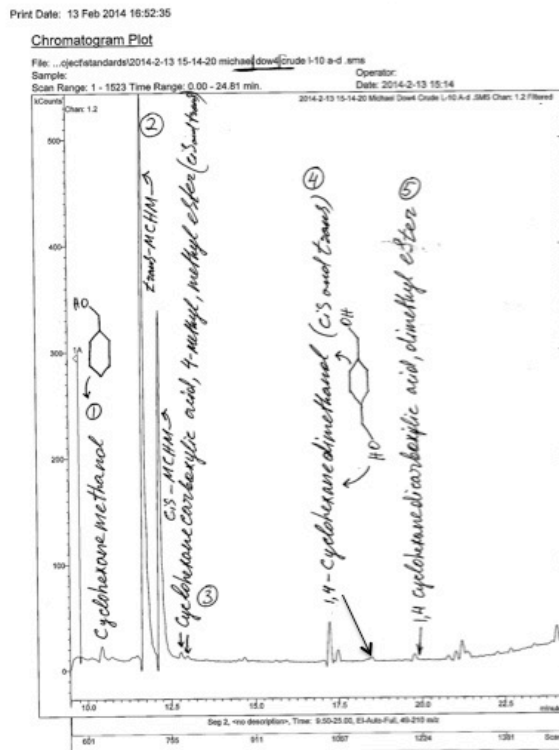 Print Date: 13 Feb 2014 16:52:35
Chromatogram Plot
File: ...oject\standards\2014-2-13 15-14-20 michael dow4 crude l-10 a-d .sms
Sample: Operator:
Scan Range: 1 - 1523 Time Range: 0.00 - 24.81 min. Date: 2014-2-13 15:14
2014-2-13 15-14-20 Michael Dow4 Crude L-10 A-d .SMS Chan: 1.2 Filtered
kCounts
Chan: 1.2
500
400
300
200
100
0
1A
HO
Cyclohexane methanol 1
2
trans-MCHM
cis-MCHM
Cyclohexanecarboxylic acid, 4-methyl, methyl ester (cis and trans)
3
1,4-Cyclohexanedimethanol (cis and trans) 4
OH
HO
1,4 cyclohexanedicarboxylic acid, dimethyl ester 5
10.0 12.5 15.0 17.5 20.0 22.5
minutes
Seg 2, <no description>, Time: 9.50-25.00, EI-Auto-Full, 40-210 m/z
601 755 911 1067 1224 1381 Scans